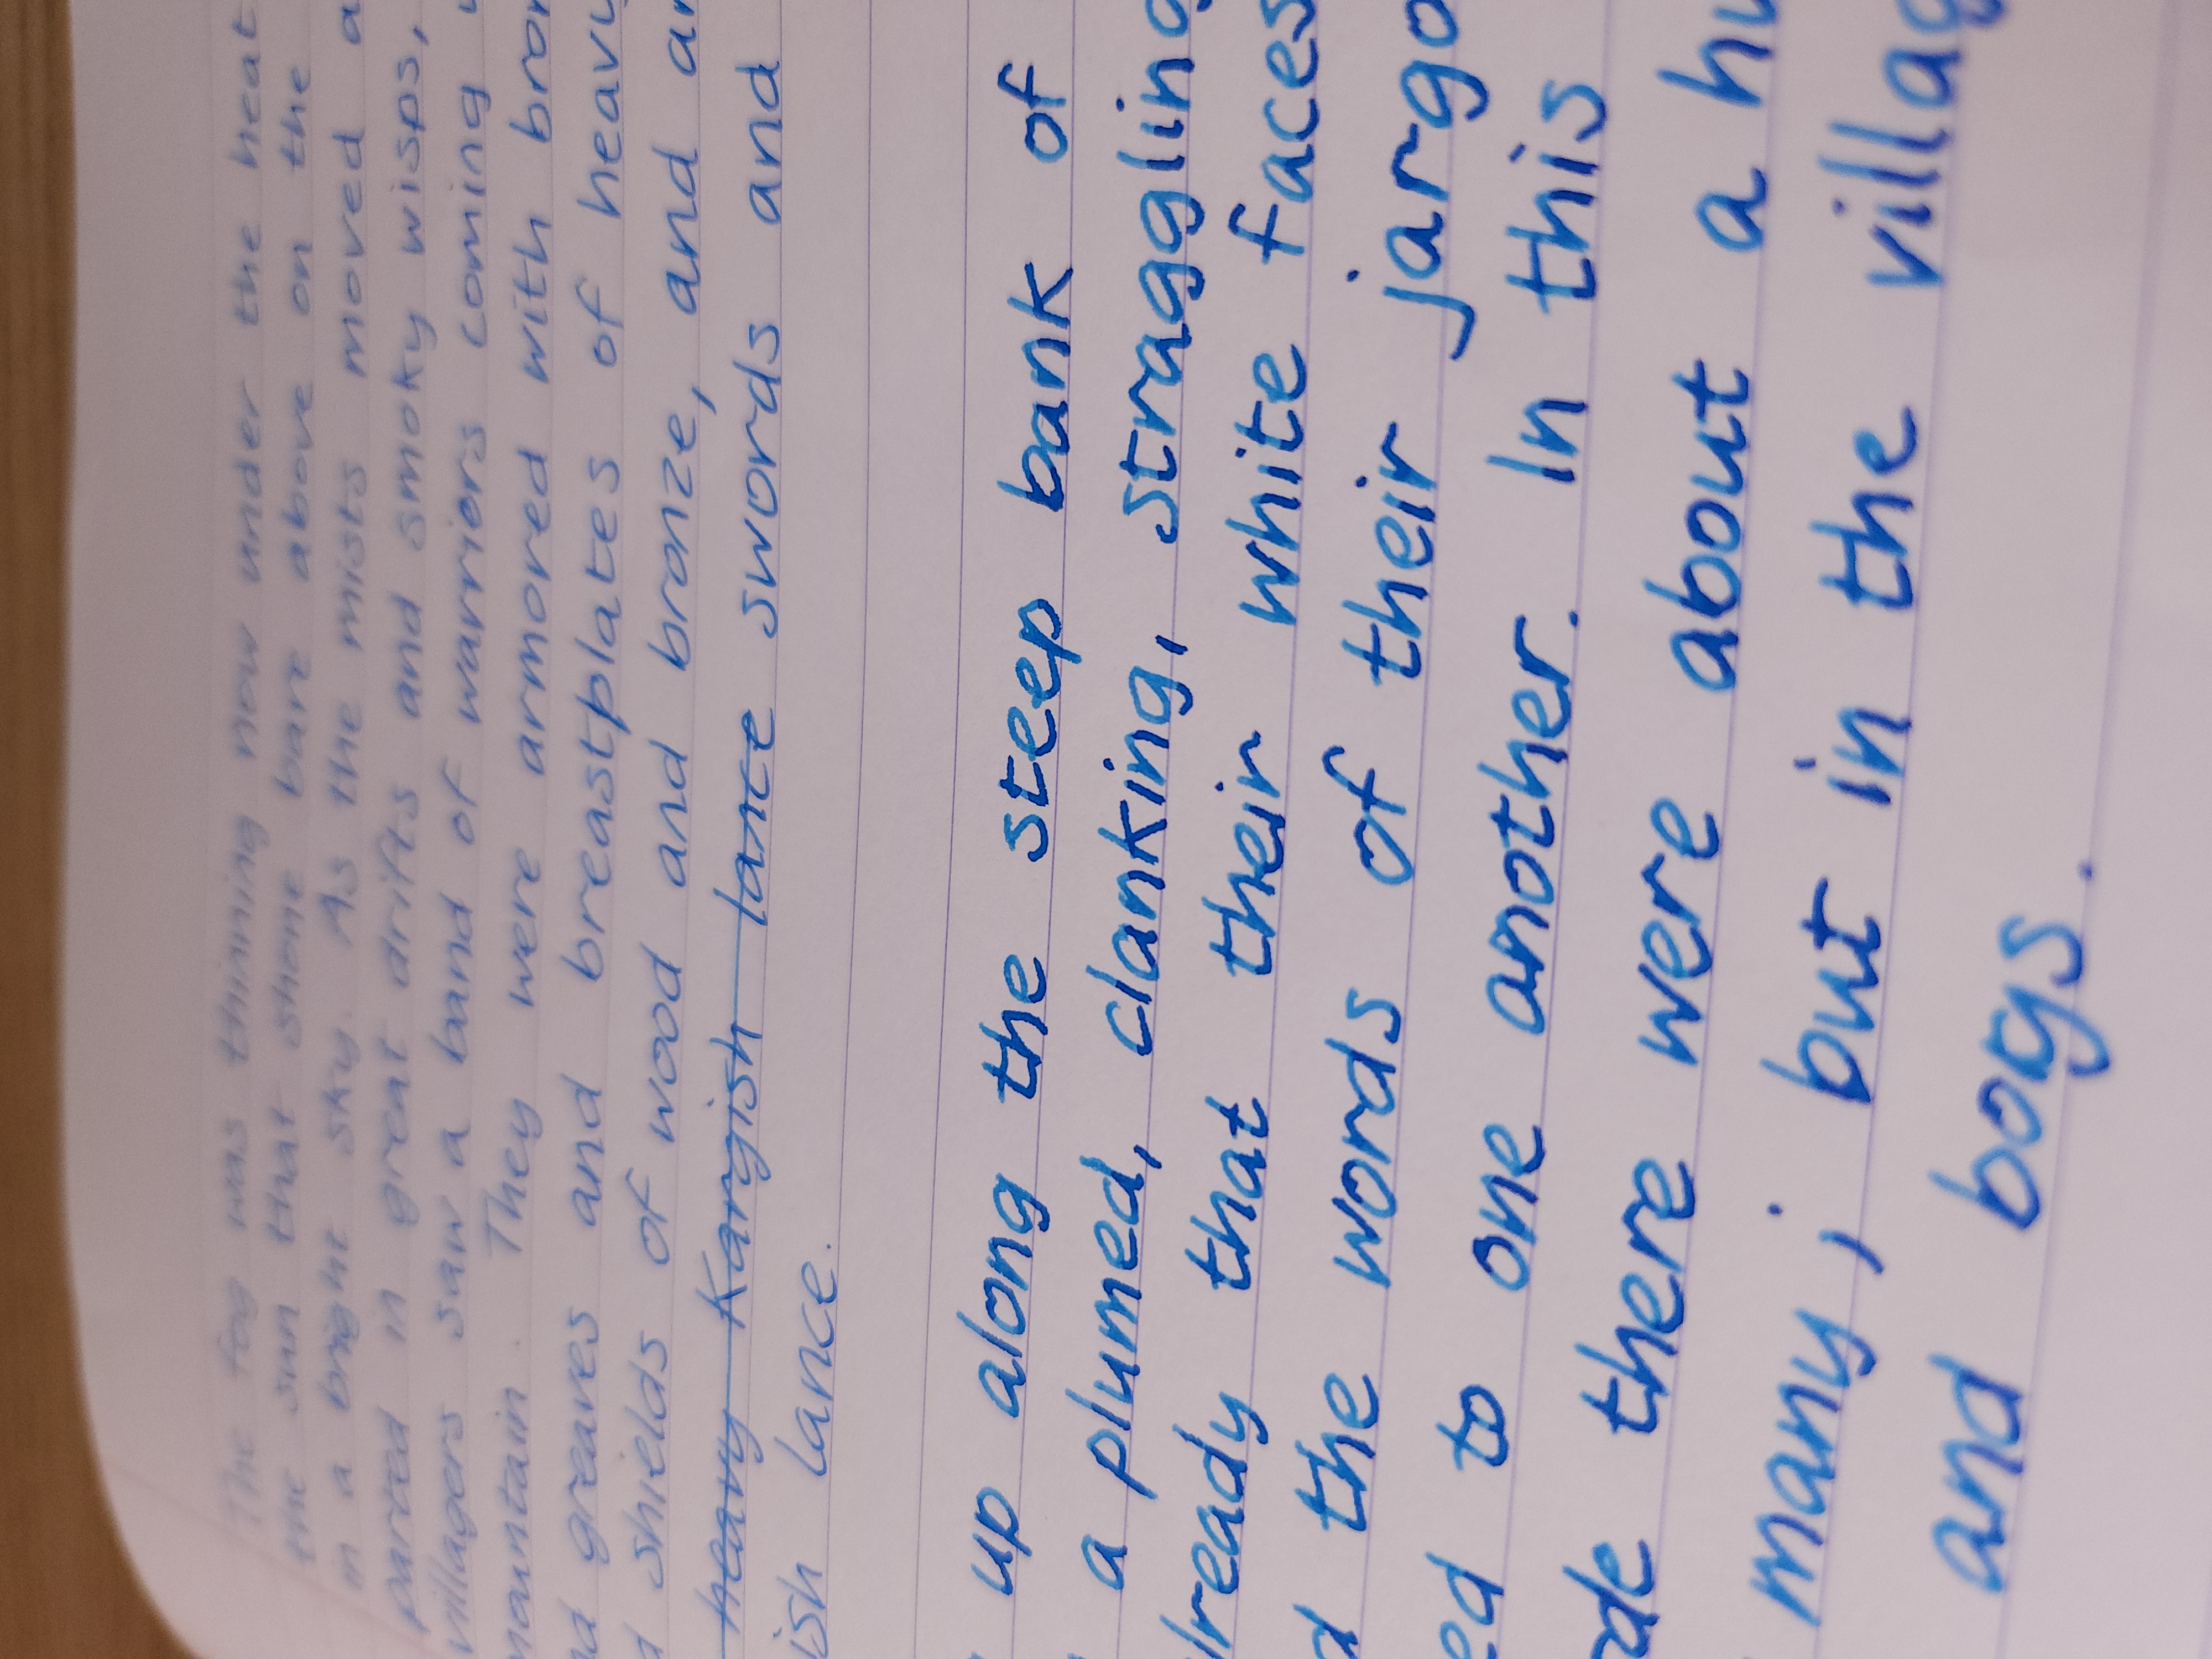 The fog was thinning now under the heat
the sun that shone bare above on the
in a bright sky. As the mists moved a
parted in great drifts and smoky wisps,
villagers saw a band of warriors coming
mountain. They were armored with bron
nd greaves and breastplates of heavy
d shields of wood and bronze, and ar
heavy Kargish lance swords and
ish lance.
up along the steep bank of
a plumed, clanking, straggling
lready that their white faces
d the words of their jargo
ed to one another. In this
de there were about a hu
many; but in the villag
and boys.